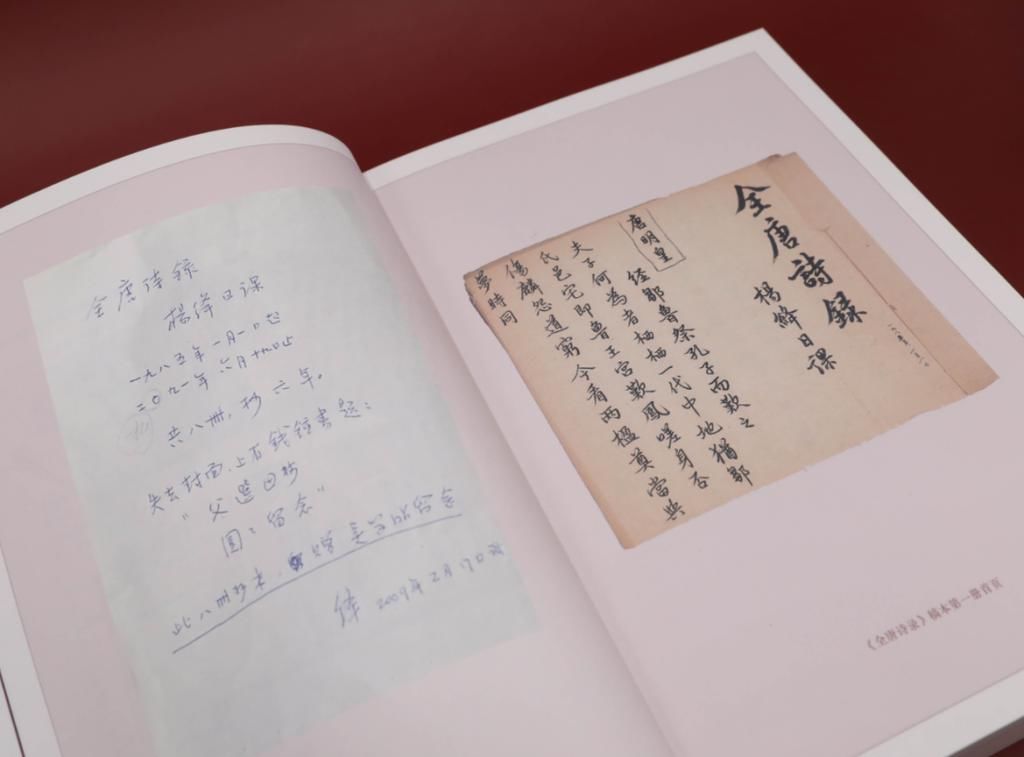 全唐诗録
杨绛日课
一九八五年一月一日起
九一年六月十九日止
共八册,抄六年。
失去封面,上有钱锺书题:
"父選 抄
圆:留念"
此八册抄本,赠
绛 2009年2月17日
全唐詩録
楊絳日课
唐明皇
經鄒魯祭孔子而歎之
夫子何為者栖栖一代中地猶鄒
氏邑宅即魯王宫歎鳳嗟身否
傷麟怨道窮今看兩楹奠當與
夢時同
《全唐诗录》稿本第一册首页